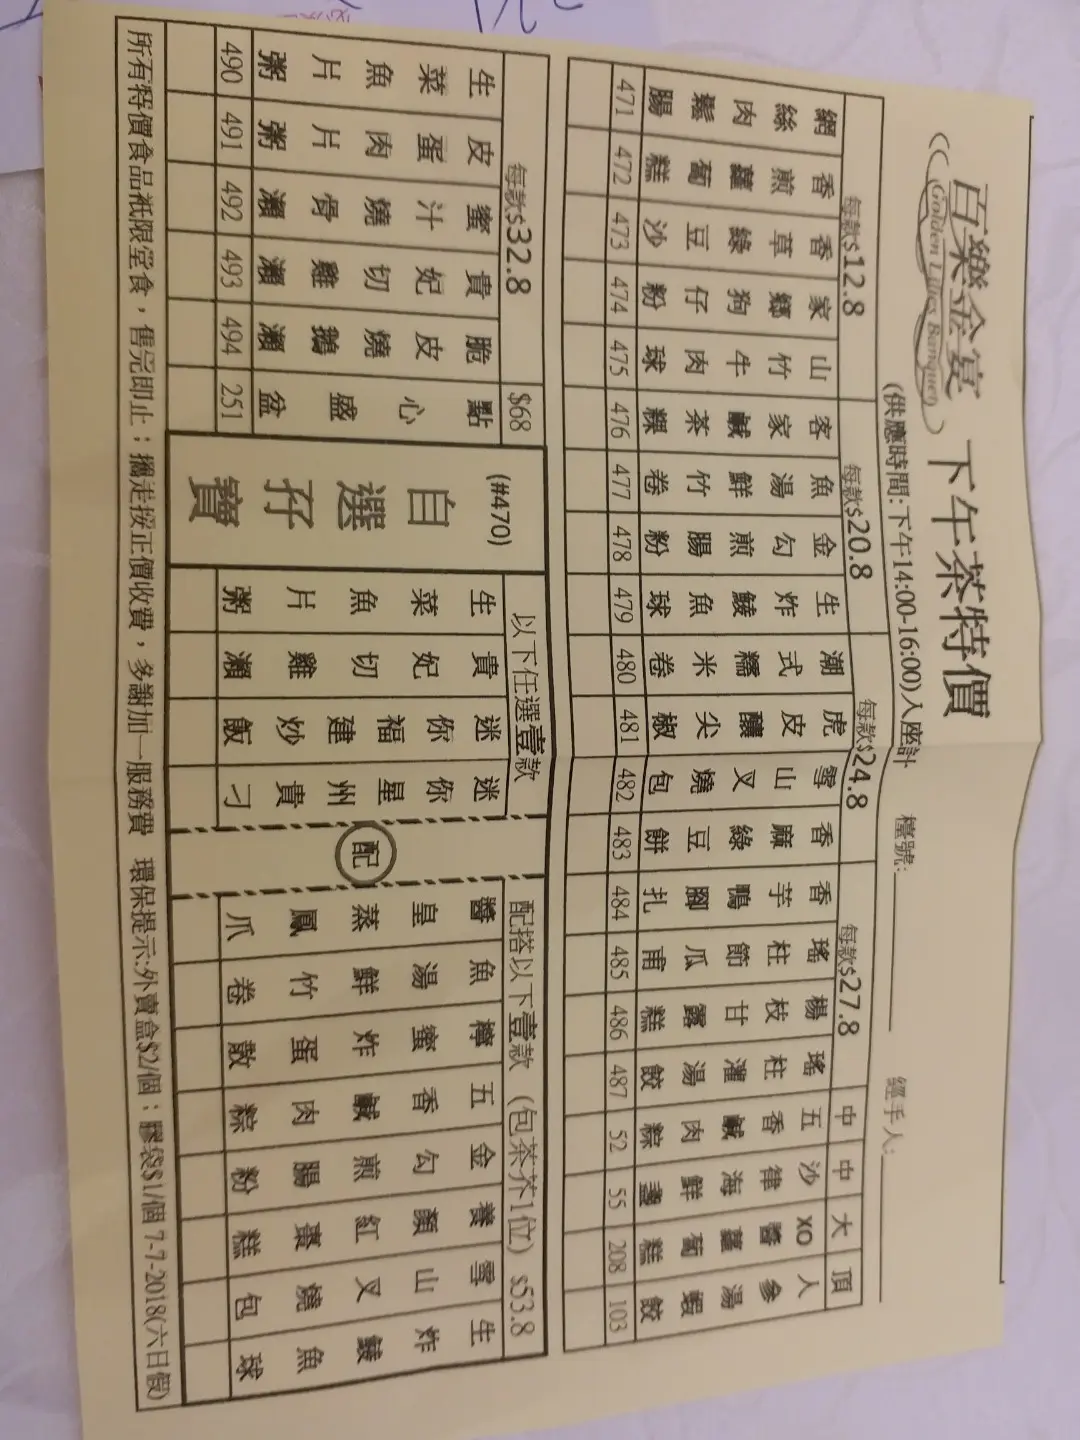 百樂金宴 下午茶特價
Golden Lilies Banquet
(供應時間:下午14:00-16:00)入座計 檯號: 經手人:
每款$12.8 每款$20.8 每款$24.8 每款$27.8 中 中 大 頂
網絲肉鬆腸 471
香煎蘿蔔糕 472
香草綠豆沙 473
家鄉狗仔粉 474
山竹牛肉球 475
客家鹹茶粿 476
魚湯鮮竹卷 477
金勾煎腸粉 478
生炸鯪魚球 479
潮式糯米卷 480
虎皮釀尖椒 481
雪山叉燒包 482
香麻綠豆餅 483
香芋鴨腳扎 484
瑤柱節瓜甫 485
楊枝甘露糕 486
瑤柱灌湯餃 487
五香鹹肉粽 52
沙律海鮮盞 55
XO醬蘿蔔糕 208
人參湯蝦餃 103
每款$32.8 $68
生菜魚片粥 490
皮蛋肉片粥 491
蜜汁燒骨瀨 492
貴妃切雞瀨 493
脆皮燒鵝瀨 494
點心盛盆 251
(#470)
自選孖寶
以下任選壹款
生菜魚片粥
貴妃切雞瀨
迷你福建炒飯
迷你星州貴刁
配
配搭以下壹款 (包茶芥1位) $53.8
醬皇蒸鳳爪
魚湯鮮竹卷
檸蜜炸蛋散
五香鹹肉粽
金勾煎腸粉
養顏紅棗糕
雪山叉燒包
生炸鯪魚球
所有特價食品祗限堂食，售完即止；攜走按正價收費，多謝加一服務費 環保提示:外賣盒$2/個；膠袋$1/個 7-7-2018(六日假)